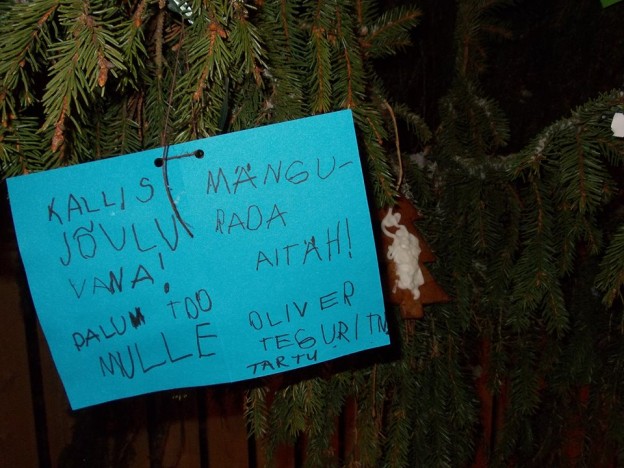 KALLIS
JÕULU
VANA!
PALUN TOO
MULLE
MÄNGU-
RADA
AITÄH!
OLIVER
TEGURITN
TARTU